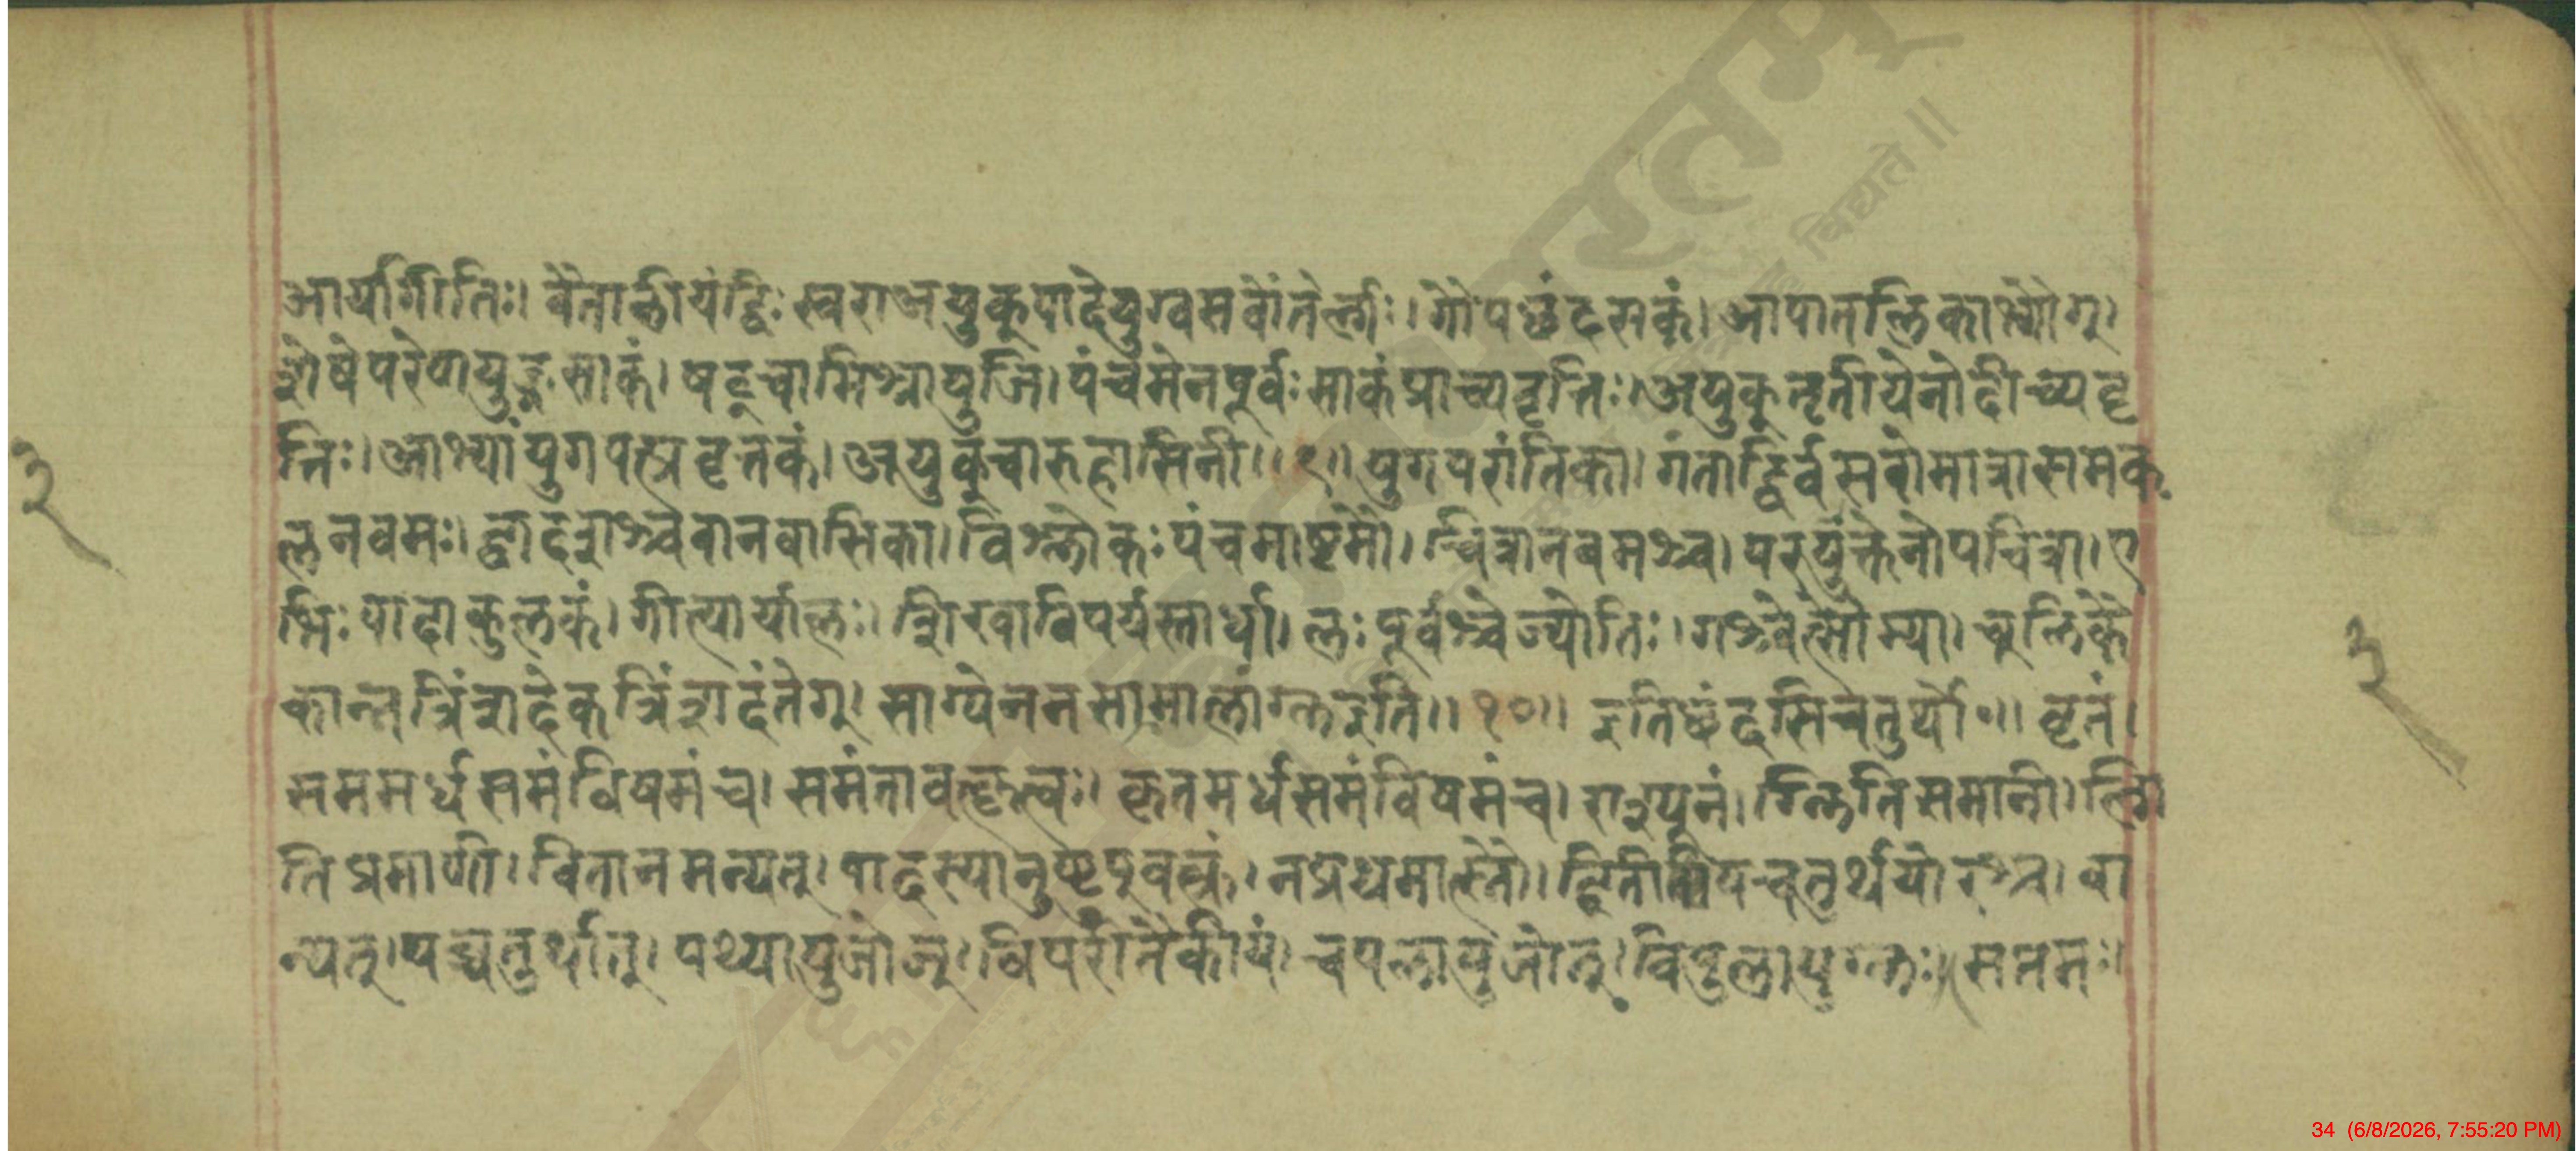 आर्यागीतिः। वैतालीयंद्विः स्वराअयुक्पादेयुग्वसवोंतेर्ल्गाः। गौपछंदसकं। आपातलिकाभ्यौग्।
शेषेपरेणयुङ्नसाकं। षट्चामिश्रायुजि। पंचमेनपूर्वः साकंप्राच्यवृत्तिः। अयुक्तृतीयेनोदीच्यवृ
त्तिः। आभ्यांयुगपत्प्रवृत्तकं। अयुक्चारुहासिनी।। ९।। युगपरांतिका। गंताद्विर्वसवोमात्रासमक
लनवमः। द्वादशश्चवानवासिका। विश्लोकः पंचमाष्टमौ। श्चित्रानवमश्च। परयुक्तेनोपचित्रा। ए
भिः पादाकुलकं। गीत्यार्यालः। शिखाविपर्यस्तार्धा। लः पूर्वश्चेज्योतिः। गश्चेत्सौम्या। चूलिकै
कान्नत्रिंशदेकत्रिंशदंतेग्। साग्येननसामालांग्लइति।। १०।। इतिछंदसिचतुर्थो०।। वृत्तं।
सममर्धसमंविषमंच। समंतावत्कृत्वः। कृतमर्धसमंविषमंच। राइयूनं। ग्लितिसमानी। ल्गि
तिप्रमाणी। वितानमन्यत्। पादस्यानुष्टुप्वक्त्रं। नप्रथमात्स्नौ। द्वितीयचतुर्थयोरश्च। वा
न्यत्। यच्चतुर्थात्। पथ्यायुजोज्। विपरीतैकीयं। चपलायुजोन्। विपुलायुग्लः। सप्तमः।
३
३
विद्यते॥
34 (6/8/2026, 7:55:20 PM)